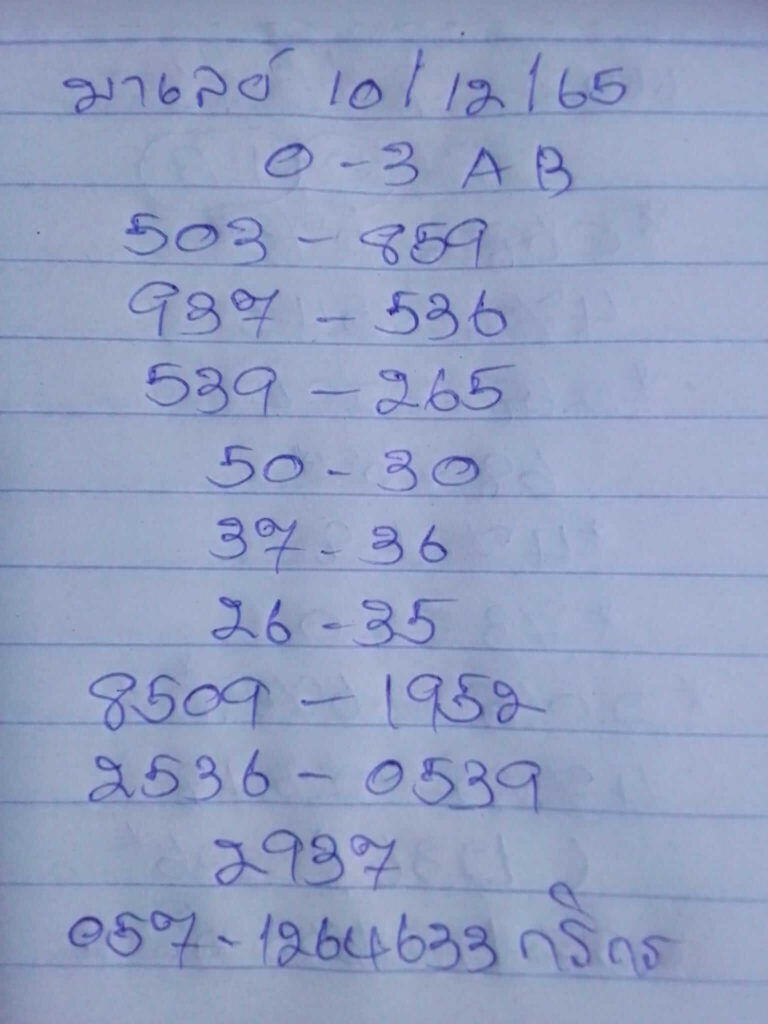 มาเลย์ 10/12/65
0-3 AB
503 - 859
937 - 536
539 - 265
50 - 30
37 - 36
26 - 35
8509 - 1952
2536 - 0539
2937
057-1264633